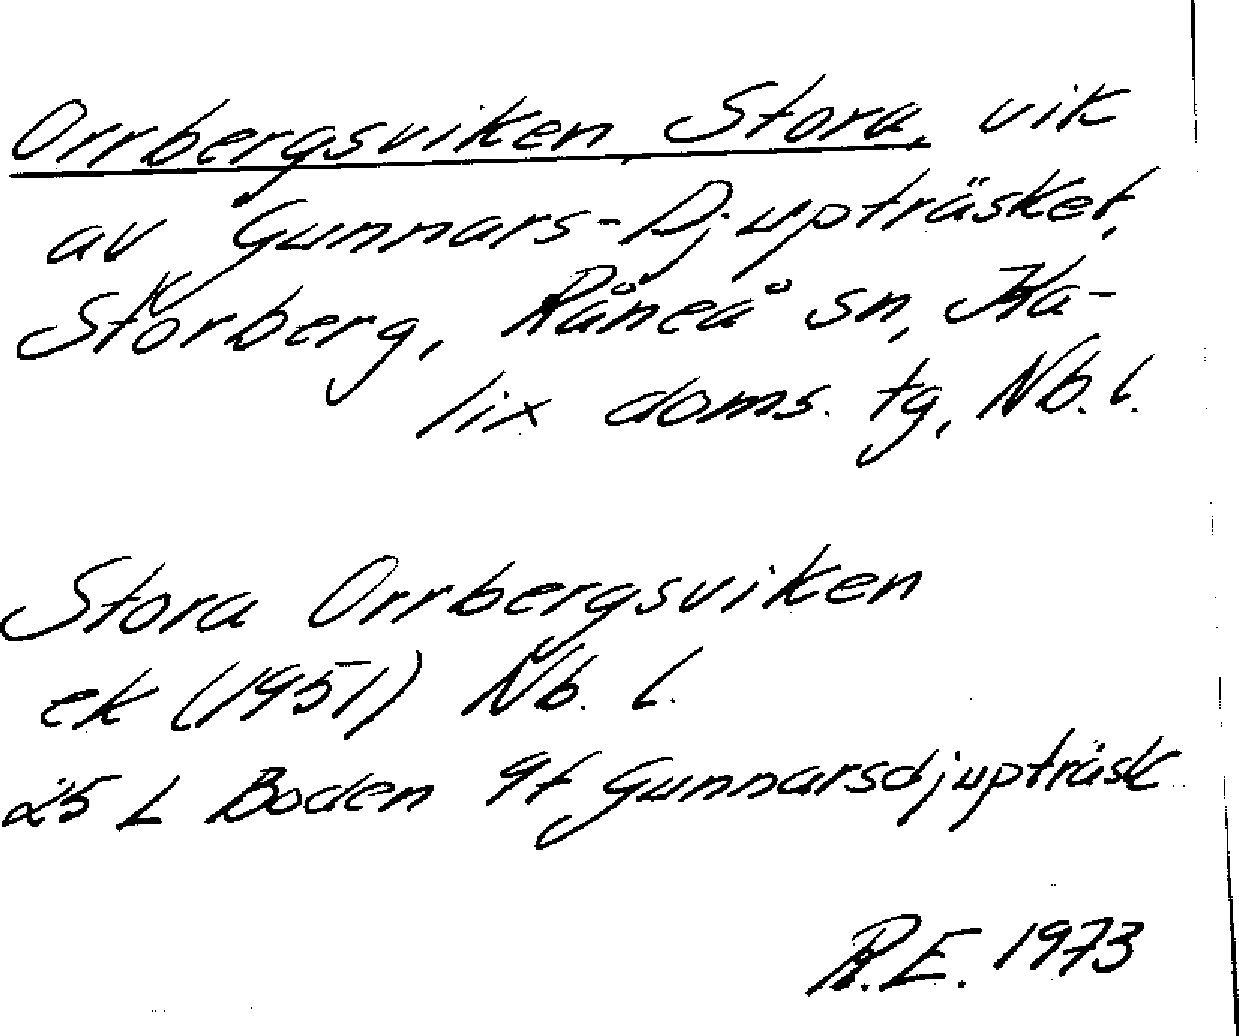 Orrbergsviken, Stora, vik
av Gunnars-Djupträsket,
Storberg, Råneå sn, Ka-
lix doms. tg, Nb. l.
Stora Orrbergsviken
ek (1951) Nb. l.
25 L Boden 9f Gunnarsdjupträsk
R.E. 1973